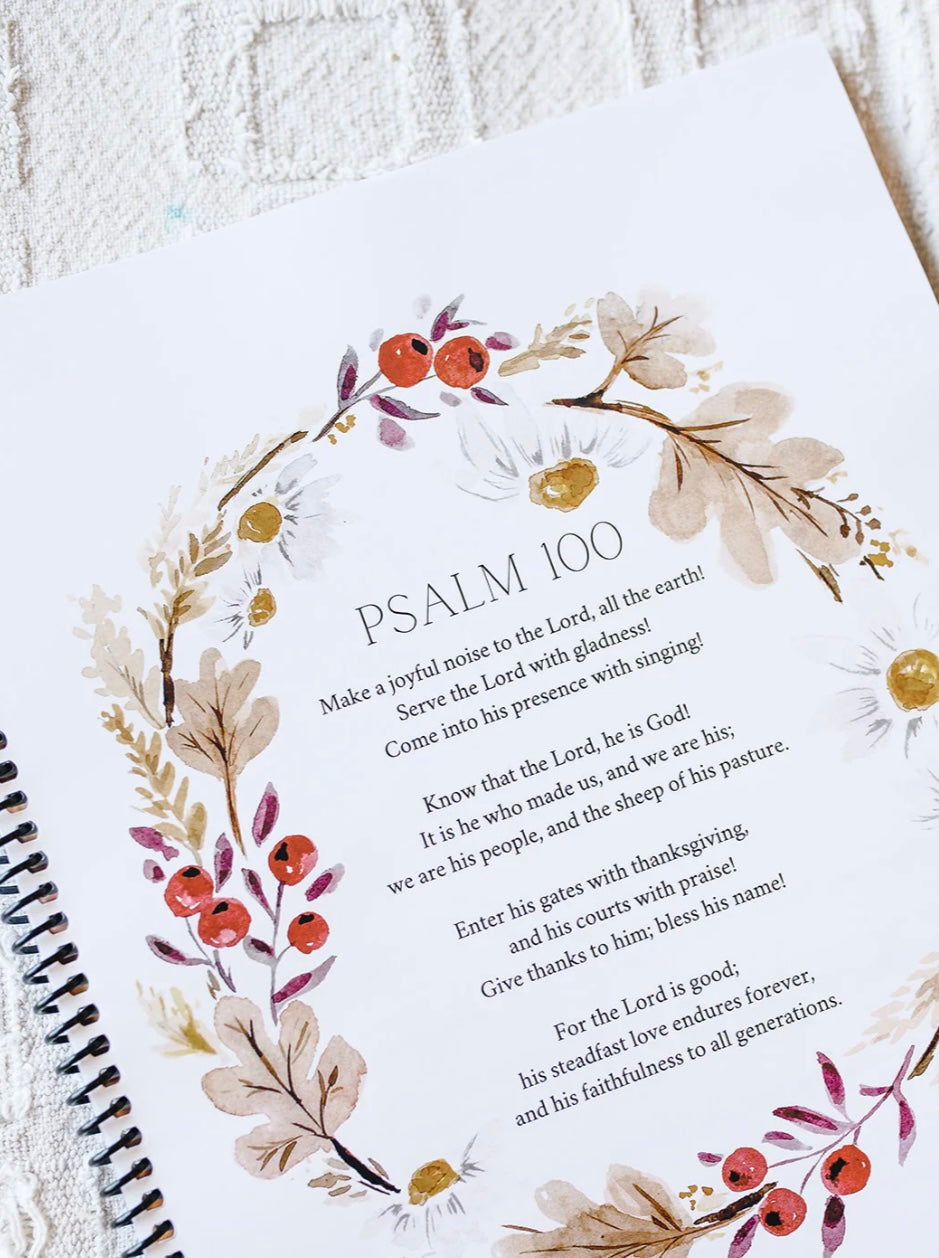 PSALM 100
Make a joyful noise to the Lord, all the earth!
Serve the Lord with gladness!
Come into his presence with singing!
Know that the Lord, he is God!
It is he who made us, and we are his;
we are his people, and the sheep of his pasture.
Enter his gates with thanksgiving,
and his courts with praise!
Give thanks to him; bless his name!
For the Lord is good;
his steadfast love endures forever,
and his faithfulness to all generations.